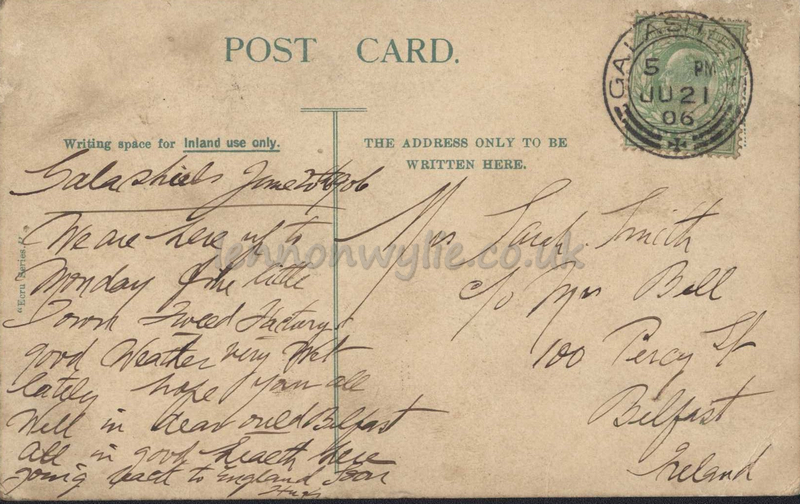 POST CARD.
GALASHIELS
5 PM
JU 21
06
Writing space for Inland use only.
THE ADDRESS ONLY TO BE
WRITTEN HERE.
"Ecru" Series.
Galashiels June 20th 1906
We are here up to
Monday fine little
Town Tweed Factorys
good Weather very Wet
lately hope your all
Well in dear ould Belfast
all in good health here
going back to England soon
Mrs Sarah Smith
c/o Mrs Bell
100 Percy St
Belfast
Ireland
lennonwylie.co.uk